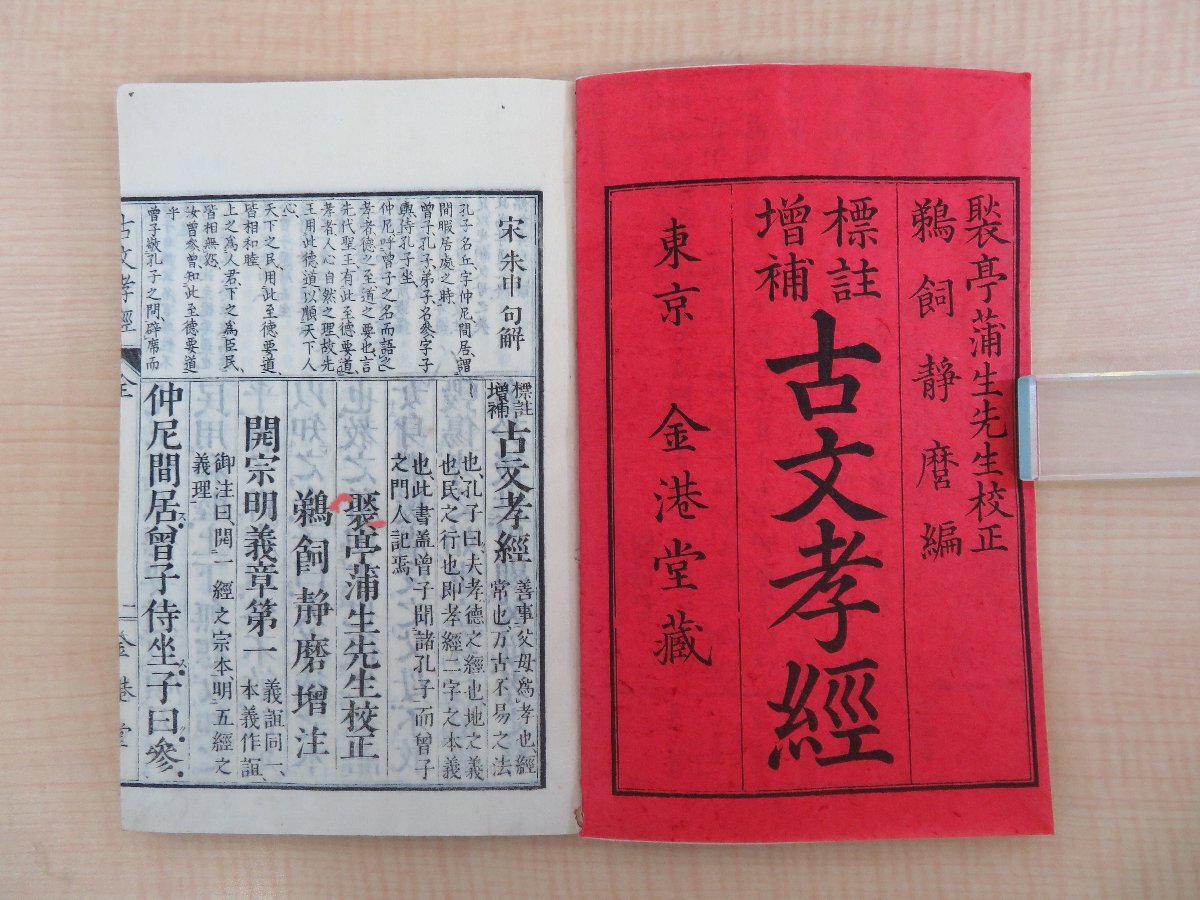 褧亭蒲生先生校正
鵜飼靜麿編
標註
增補
古文孝經
東京 金港堂藏
宋朱申句解
孔子名丘字仲尼間居謂
間暇居處之時
曾子孔子弟子名參字子
輿侍孔子坐
仲尼呼曾子之名而語之
孝者德之至道之要也言
先代聖王有此至德要道
孝者人心自然之理故先
王用此德道以順天下人
心
天下之民用此至德要道
皆相和睦
上之爲人君下之爲臣民
皆相無怨
汝曾參曾知此至德要道
乎
曾子敬孔子之問辟席而
標註
增補
古文孝經
善事父母爲孝也經
常也万古不易之法
也孔子曰夫孝德之經也地之義
也民之行也即孝經二字之本義
也此書蓋曾子聞諸孔子而曾子
之門人記焉
褧亭蒲生先生校正
鵜飼靜磨增注
開宗明義章第一
義誼同一
本義作誼
御注曰開一經之宗本明五經之
義理
仲尼間居曾子侍坐子曰參
古文孝經
全
一
金港堂